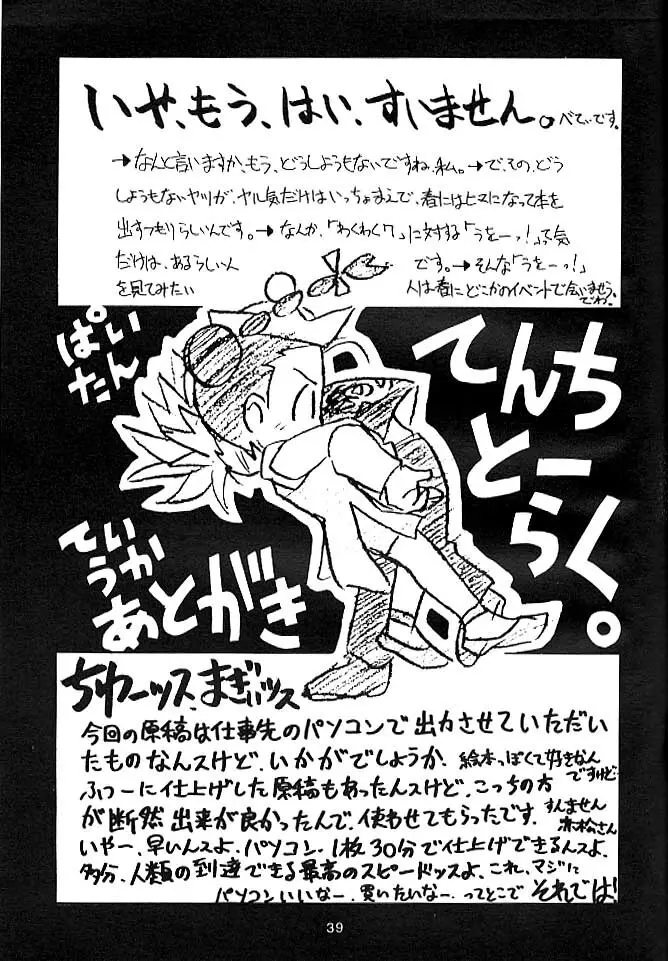 いや、もう、はい、すいません。べてぃです。
→なんと言いますか、もう、どうしようもないですね、私。→で、その、どう
しようもないヤツが、ヤル気だけはいっちょまえで、春にはヒマになって本を
出すつもりらしいんです。→なんか、「わくわく7」に対する「うをーっ!」って気
だけは、あるらしい人
です。→そんな「うをーっ!」
を見てみたい
人は春にどこかのイベントで会いませう。
でわ。
ぱい
たん
てんち
とー
らく。
ていうか
あとがき
ちわーッス、まぎぃッス
今回の原稿は仕事先のパソコンで出力させていただい
たものなんスけど、いかがでしょうか、絵本っぽくて好きなん
ですけど…
ふつーに仕上げした原稿もあったんスけど、こっちの方
が断然出来が良かったんで、使わせてもらったです。すんません
赤松さん
いやー、早いんスよ、パソコン。1枚30分で仕上げできるんスよ、
多分、人類の到達できる最高のスピードッスよ、これ、マジに
パソコンいいなー、買いたいなー、ってとこで それでは!
39